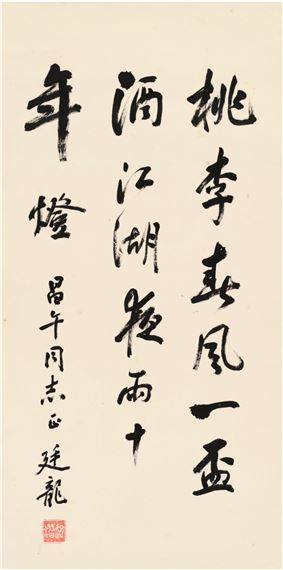 桃李春風一盃
酒江湖夜雨十
年燈
昌午同志正 廷龍